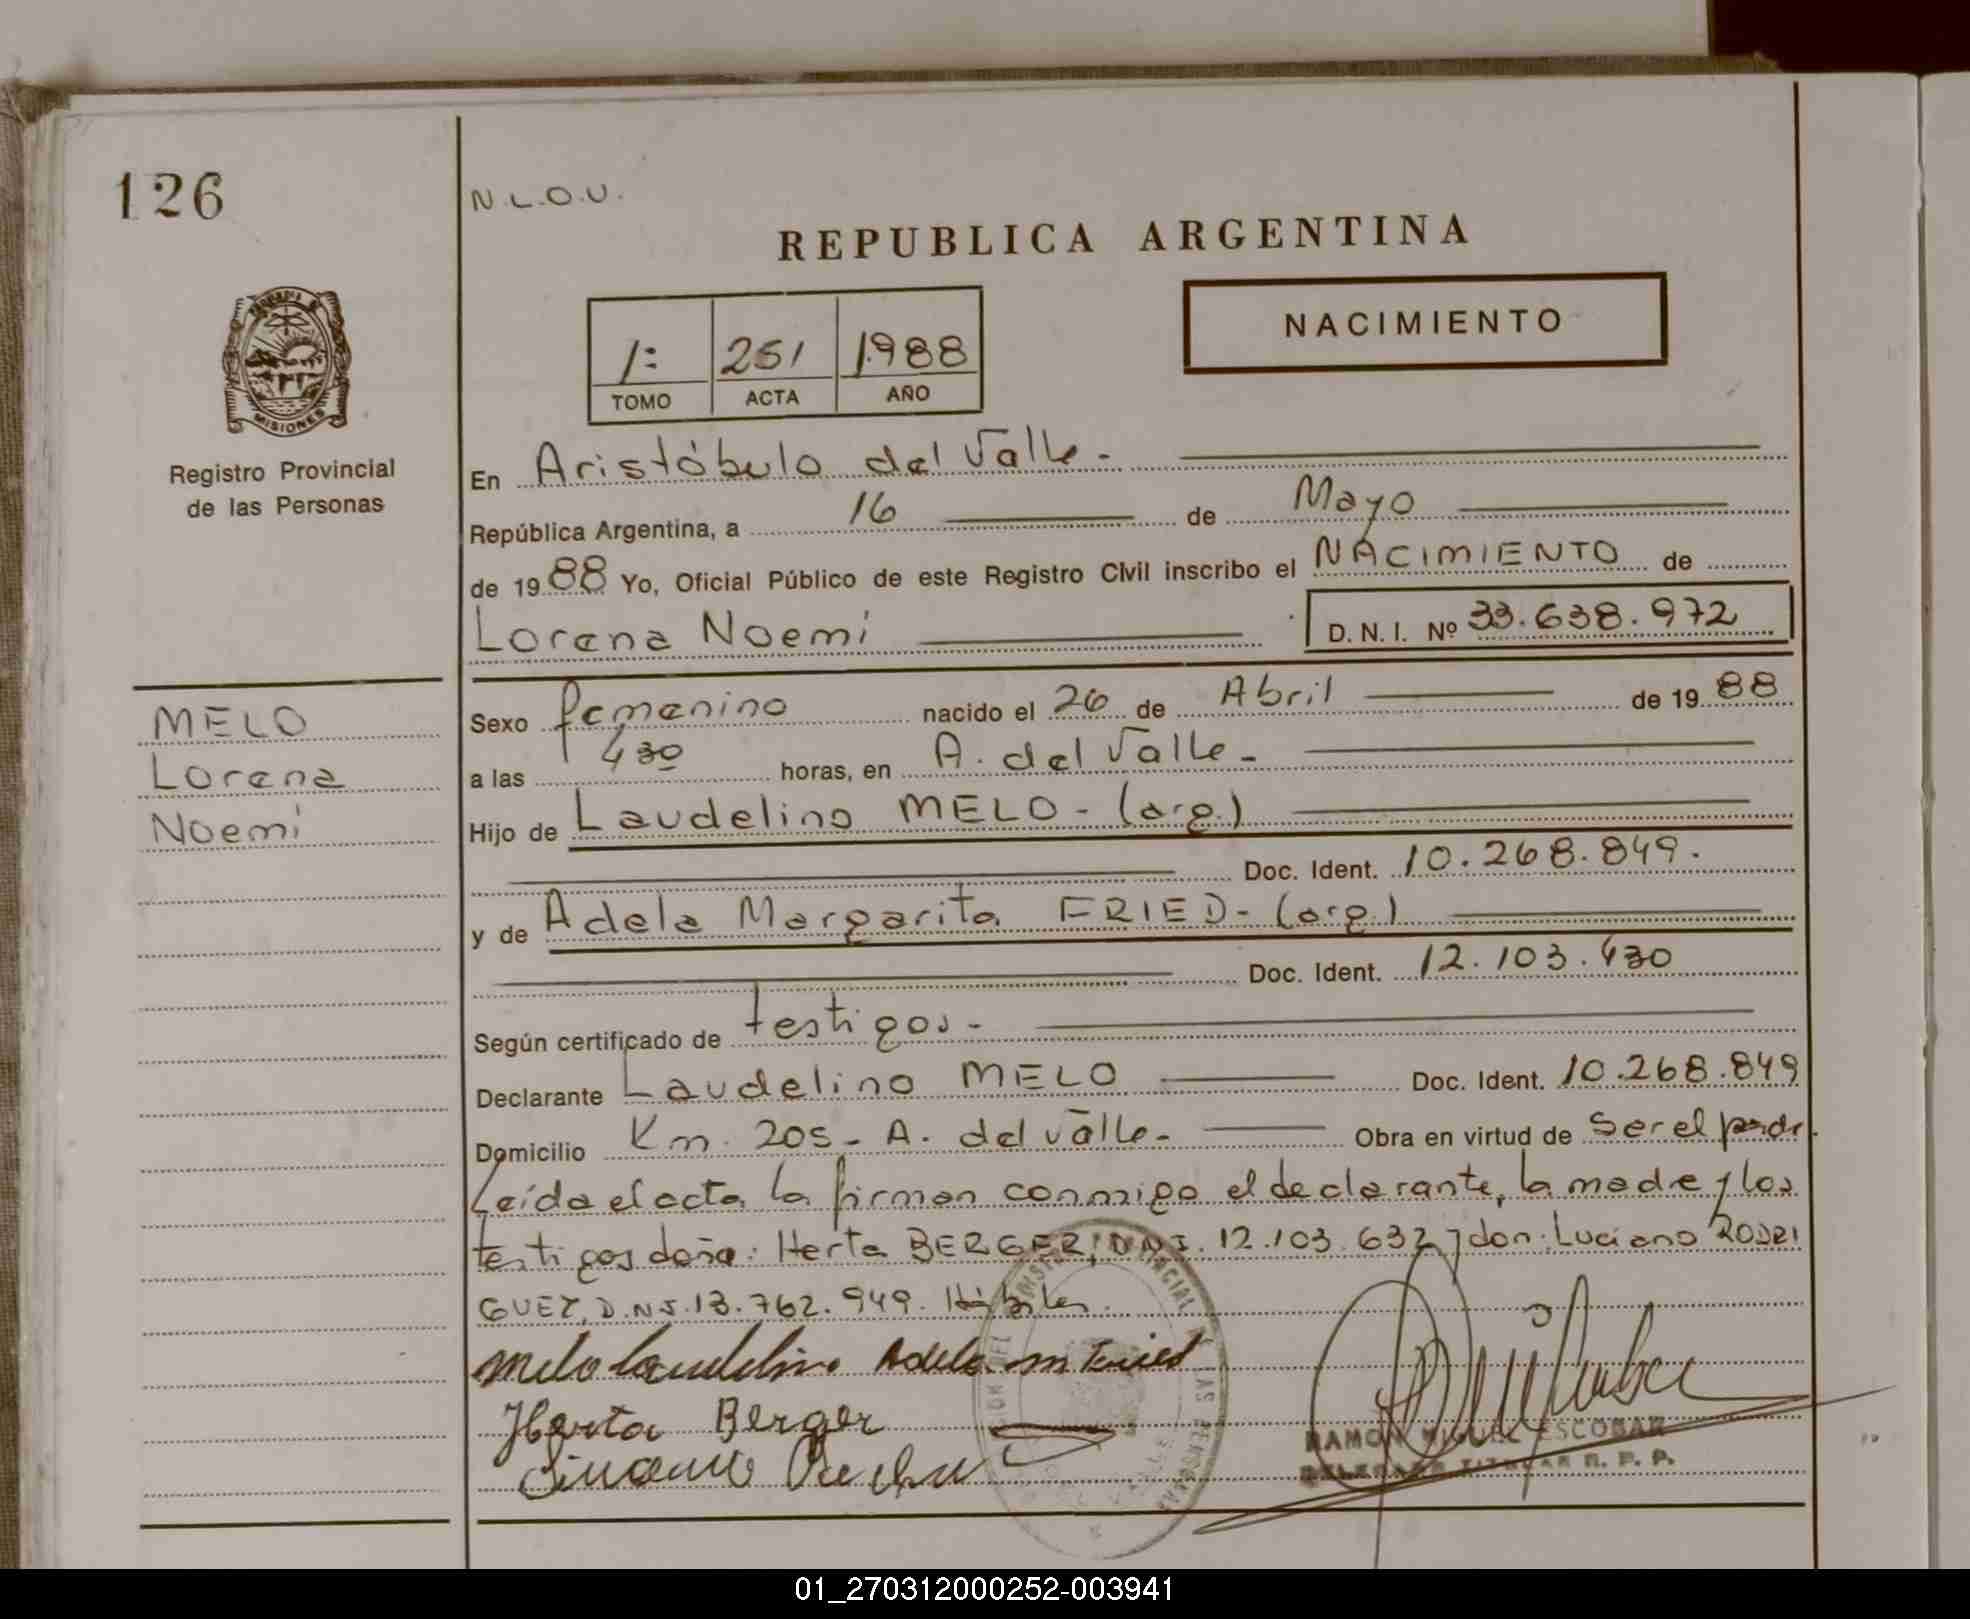 126
N.L.O.U.
REPUBLICA ARGENTINA
NACIMIENTO
1: 251 1988
TOMO ACTA AÑO
MISIONES
Registro Provincial
de las Personas
En Aristóbulo del Valle.
República Argentina, a 16 de Mayo
de 1988 Yo, Oficial Público de este Registro Civil inscribo el NACIMIENTO de
Lorena Noemí D. N. I. Nº 33.638.972
MELO
Lorena
Noemí
Sexo femenino nacido el 26 de Abril de 1988
a las 430 horas, en A. del Valle-
Hijo de Laudelino MELO- (arg.)
Doc. Ident. 10.268.849.
y de Adela Margarita FRIED- (arg.)
Doc. Ident. 12.103.430
Según certificado de testigos-
Declarante Laudelino MELO Doc. Ident. 10.268.849
Domicilio Km. 205- A. del Valle- Obra en virtud de Ser el padre
Leída el acta, la firman conmigo el declarante, la madre y los
testigos doña: Herta BERGER, D.N.I. 12.103.632 y don: Luciano RODRI
GUEZ, D.N.I. 13.762.949. Hábiles.
Melo Laudelino Adela M Fried
Herta Berger
RAMON MIGUEL ESCOBAR
DELEGADO TITULAR R. P. P.
01_270312000252-003941